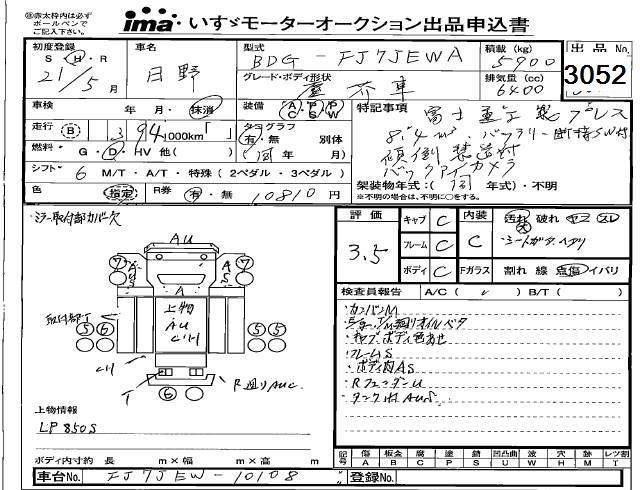 ㊟赤太枠内は必ず
ボールペンで
ご記入下さい。
ima いすゞモーターオークション出品申込書
初度登録 S・H・R 21/5月
車名 日野
型式 BDG-FJ7JEWA
積載(kg) 5900
出品No. 3052
グレード・ボディ形状 塵芥車
排気量(cc) 6400
車検 年 月・抹消
装備 A/C P/S P/W
特記事項 富士重工製プレス
走行 B 3 94,1000km「 」
タコグラフ 有・無 別体
8.4m³ バッテリー断接SW付
燃料 G・D・HV 他( )
( 同 年 月)
傾倒装置付
シフト 6 M/T・A/T・特殊(2ペダル・3ペダル)
バックアイカメラ
色 指定
R券 有・無 10810円
架装物年式:( 同 年式)・不明
※不明の場合は、不明に○をする。
・ミラー取付部カバー欠
評価 3.5
キャブ C
フレーム C
ボディ C
内装 C
汚れ 破れ ヤニ スレ
大
・シートガタ・ヘタリ
Fガラス 割れ 線 点傷 イバリ
検査員報告 A/C( ✓ ) B/T( )
AU
7 7
AUS
A
取付部T 5 6
上物
AU
5 5
T
R廻りAUC
6
・カンバンM
・キャブ、ボディ色あせ
・フレームS
・ボディ内AS
・RフェンダーU
・タンク附AUS
上物情報
LP850S
ボディ内寸約 長 m×幅 m×高 m
記号 傷A 板金B 腐C 塗P 錆S 凹凸曲U 波W 穴H 跡M レツ割T
車台No. FJ7JEW-10108
登録No.